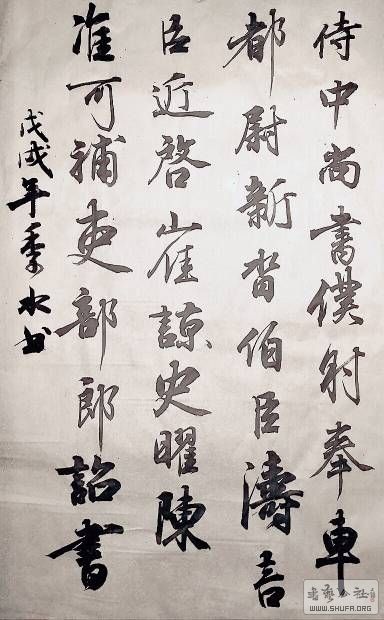 侍中尚書僕射奉車
都尉新沓伯臣濤言
臣近啓崔諒史曜陳
准可補吏部郎詔書
戊戌年季水书
書藝公社
WWW.SHUFA.ORG